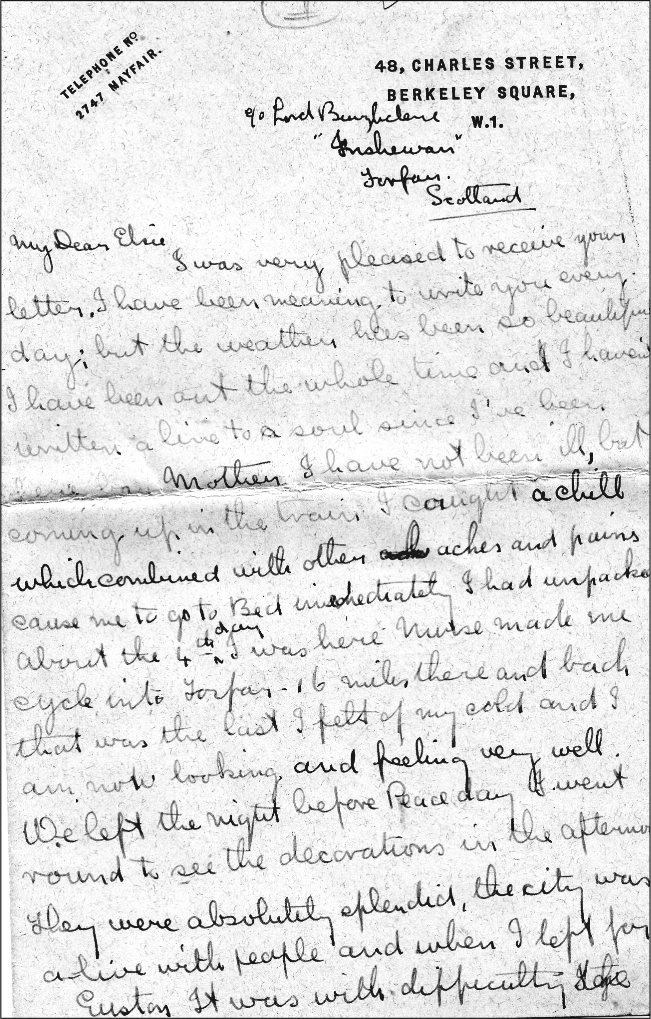 TELEPHONE NO
2747 MAYFAIR.
48, CHARLES STREET,
BERKELEY SQUARE,
W.1.
c/o Lord Burghclere
"Inshewan"
Forfar.
Scotland
My Dear Elsie
I was very pleased to receive your
letter, I have been meaning to write you every
day; but the weather has been so beautiful
I have been out the whole time and I haven't
written a line to a soul since I've been
here Mother I have not been ill, but
coming up in the train I caught a chill
which combined with other aches and pains
cause me to go to Bed imedhediately I had unpacked
about the 4th day I was here Nurse made me
cycle into Forfar - 16 miles there and back
that was the last I felt of my cold and I
am now looking and feeling very well.
We left the night before Peace day I went
round to see the decorations in the afternoo
they were absolutely splendid, the city was
a-live with people and when I left for
Euston It was with difficulty I